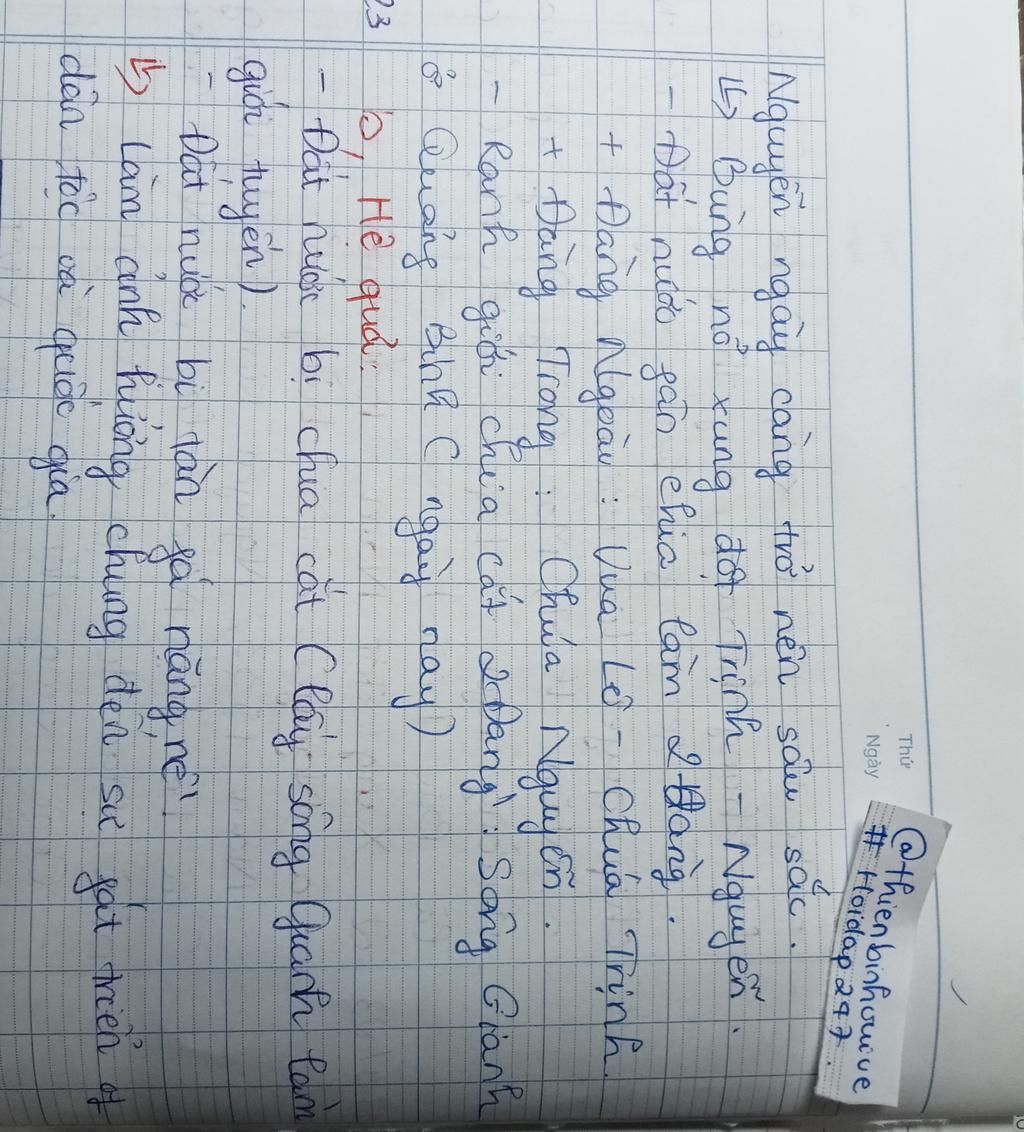 Thứ
Ngày
@thienbinhouive
# Hoidap247.
Nguyễn ngày càng trở nên sâu sắc.
↳ Bùng nổ xung đột Trịnh - Nguyễn.
- Đất nước gần chia làm 2 Đàng.
+ Đàng Ngoài: Vua Lê - Chúa Trịnh.
+ Đàng Trong: Chúa Nguyễn.
- Ranh giới chia cắt 2 Đàng: Sông Gianh
ở Quảng Bình (ngày nay)
23
b, Hệ quả:
- Đất nước bị chia cắt (lấy sông Gianh làm
giới tuyến).
- Đất nước bị tàn fá nặng nề
↳ Làm ảnh hưởng chung đến sự fát triển of
dân tộc và quốc gia.